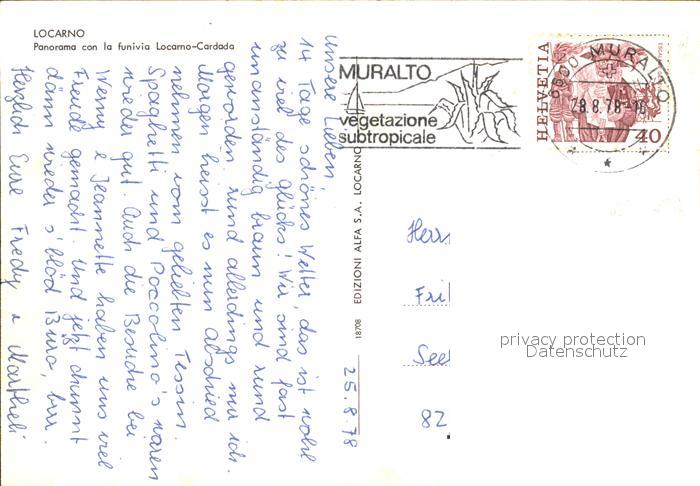 LOCARNO
Panorama con la funivia Locarno-Cardada
MURALTO
vegetazione
subtropicale
6600 MURALTO
28.8.78-16
HELVETIA
40
EDIZIONI ALFA S.A. LOCARNO
18708
25.8.78
Unsere Lieben,
14 Tage schönes Wetter, das ist wohl
zu viel des glücks! Wir sind fast
unanständig braun und rund
geworden. rund allerdings nur ich.
Morgen heisst es nun abschied
nehmen vom geliebten Tessin.
Spaghetti und Boccolino's waren
wieder gut. Auch die Besuche bei
Werny & Jeannette haben uns viel
Freude gemacht. Und jetzt chunnt
dänn wieder s'blöd Büro, brrr.
Herzlich Eure Fredy & Martheli
Herr
Fri
See
82
privacy protection
Datenschutz